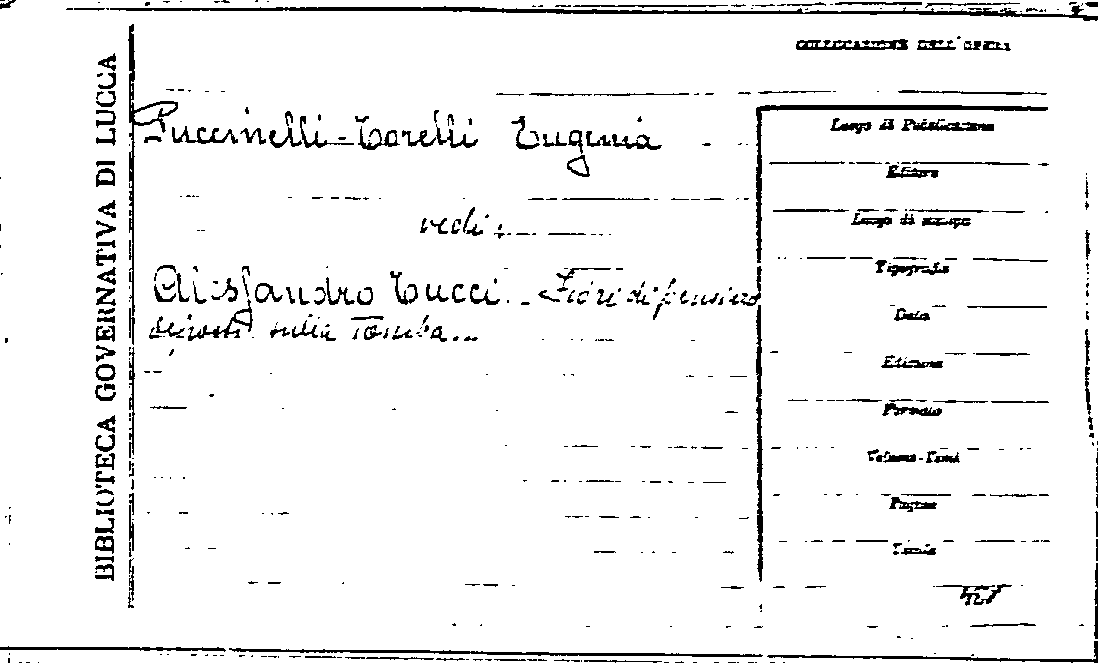 BIBLIOTECA GOVERNATIVA DI LUCCA
COLLOCAZIONE DELL'OPERA
Puccinelli-Torelli Eugenia
vedi:
Alessandro Tucci. Fiori di pensiero
deposti sulla Tomba...
Luogo di Pubblicazione
Editore
Luogo di stampa
Tipografia
Data
Edizione
Formato
Volume-Tomi
Pagine
Tavole